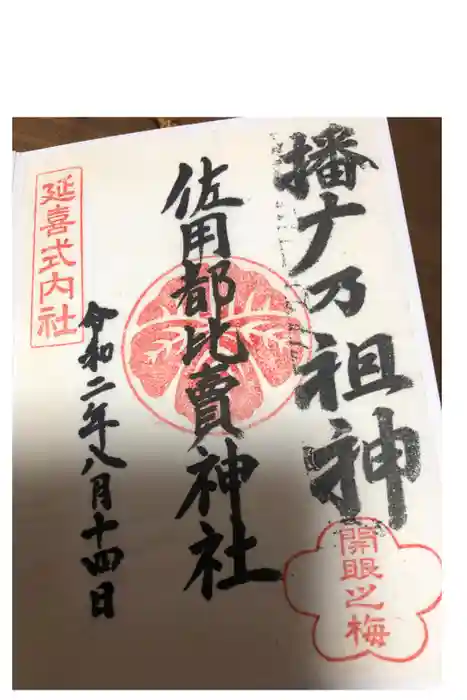 播ナ乃祖神
開眼之梅
佐用都比賣神社
延喜式内社
令和二年八月十四日